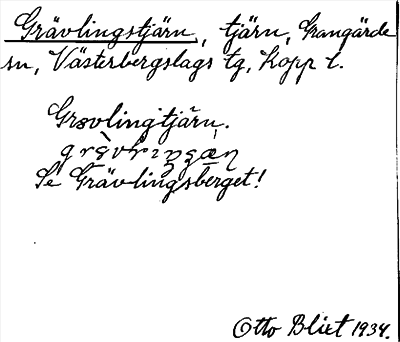 Grävlingstjärn, tjärn, Grangärde
sn, Västerbergslags tg, Kopp l.
Grävlingtjärn.
Se Grävlingsberget!
Otto Blixt 1934.